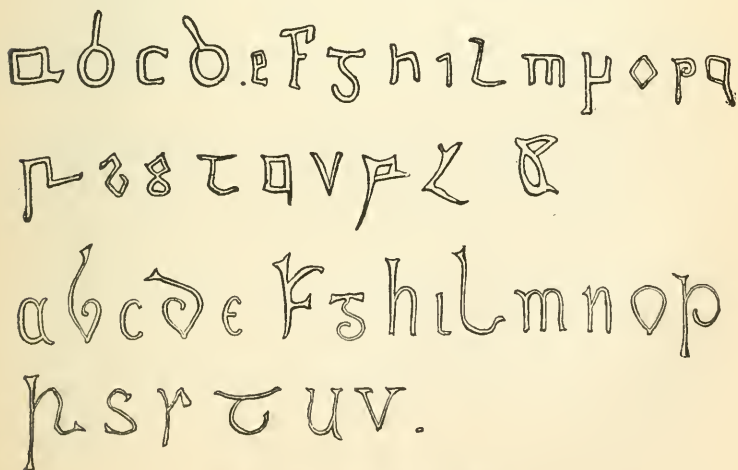 a b c d . e f g h i l m n o p q
r s s t q v
a b c d e f g h i l m n o p
r s r t u v .